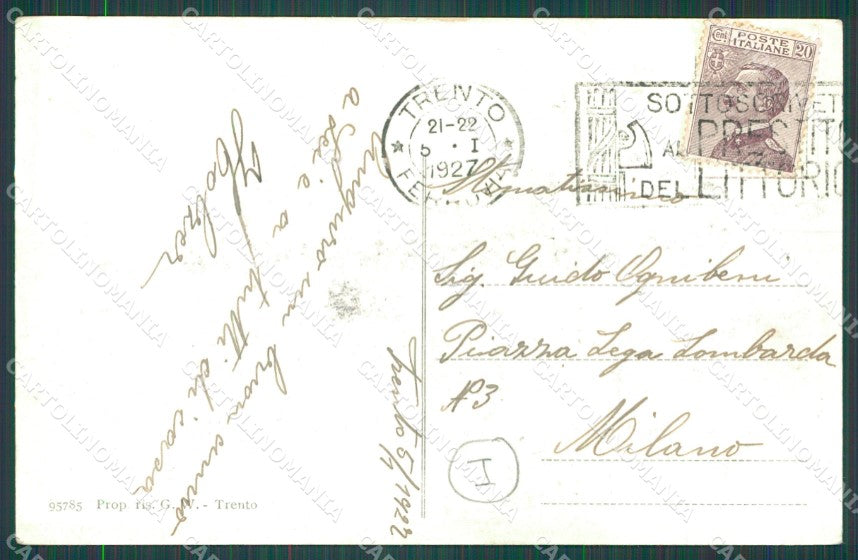 Auguro un buon anno
a Lei e a tutti di casa
Trento 5/1 1927
TRENTO
21-22
5 · I
1927
FERROVIA
SOTTOSCRIVETE
AL PRESTITO
DEL LITTORIO
Cent. POSTE ITALIANE 20
Sig. Guido Ognibeni
Piazza Lega Lombarda
N 3
Milano
I
95785 Prop. ris. G. V. - Trento
CARTOLINOMANIA